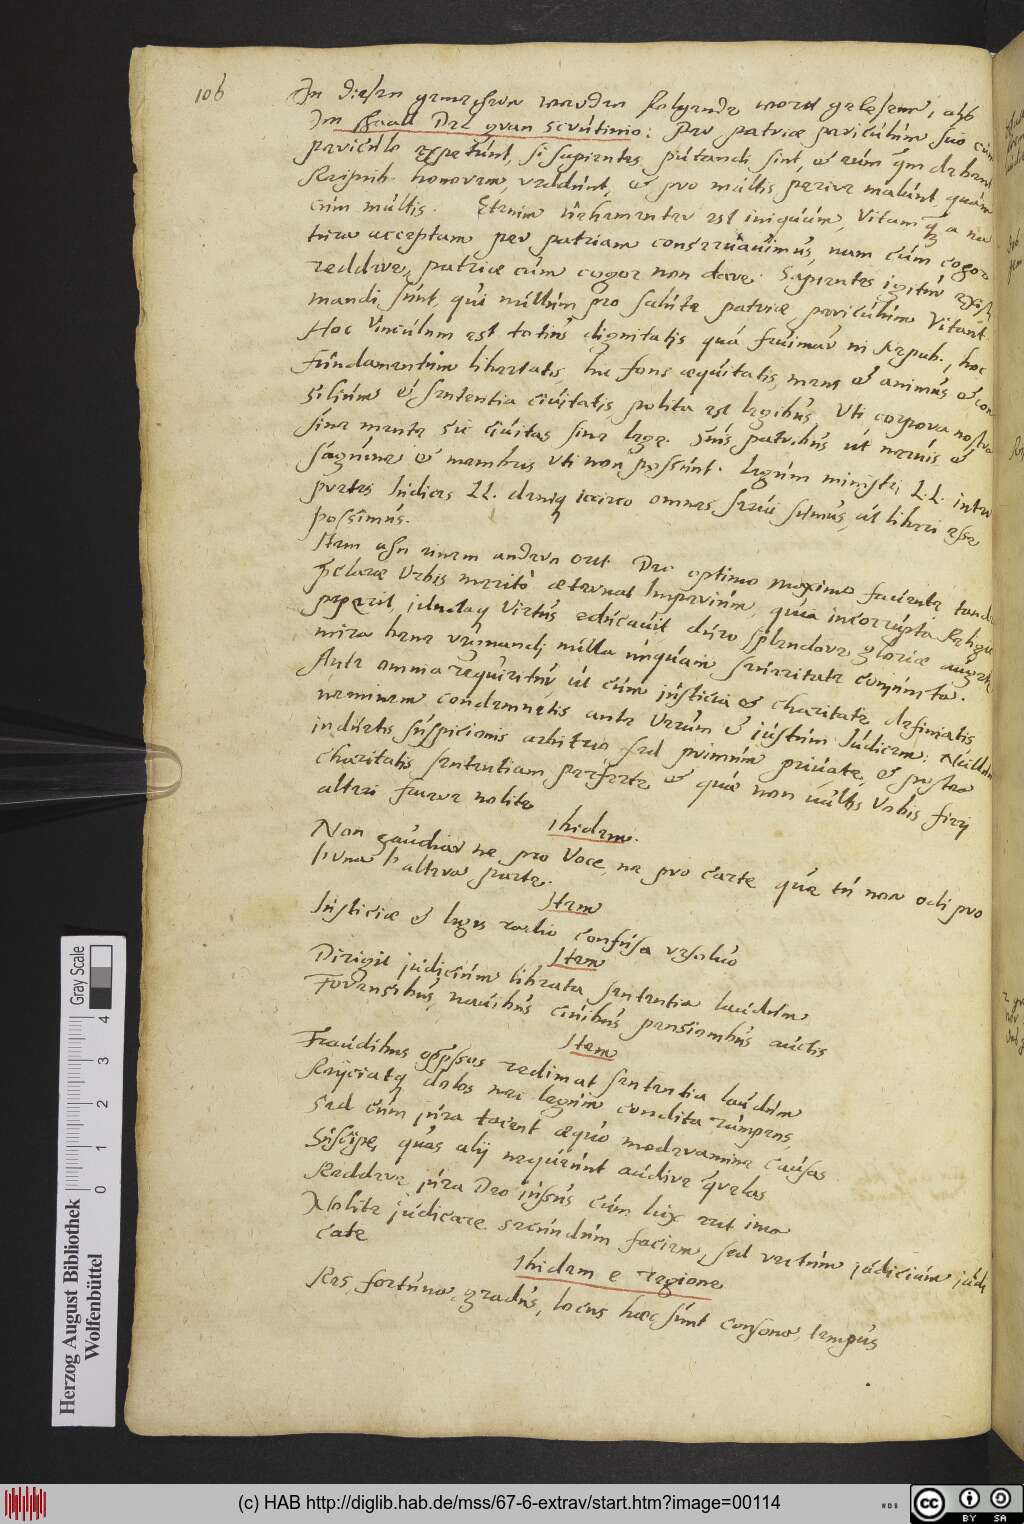 106
In diesen gemechern werden folgende wort gelesenn, alß
Im Saal Del gran scrutinio: Per patriae periculum suo cum
periculo expetunt, si sapientes putandi sint, et eum quem debent
Reipub. honorem, reddunt, et pro multis perire malunt quam
cum multis. Etenim vehementer est iniquum, vitam quam a na
tura acceptam per patriam conservavimus, nam cum cogor
reddere, patriae cum cogor non dare. Sapientes igitur existi
mandi sunt, qui nullum pro salute patriae periculum vitant.
Hoc vinculum est totius dignitatis qua fruimur in Repub., hoc
Fundamentum libertatis, hic fons aequitatis, mens et animus et con
silium et sententia civitatis posita est legibus, Uti corpora nostra
sine mente sic civitas sine lege. Suis partibus ut nervis et
sagnine et membris uti non possunt. Legum ministri, L.L. inter
pretes Iudices LL. deniq iccirco omnes servi sumus, ut liberi esse
possimus.
Item uber einem andern ort Deo optimo maximo faciente tande
Urbis merito aeternat Imperium, quia incorrupta Religio
peperit, virtus educavit duro splendore gloriae auget
mira hanc regnandi nulla unquam severitate coniuncta.
Ante omnia requiritur ut cum justicia et charitate definiatis
neminem condemnetis ante verum et justum Iudicem: Nullum
indicetis suspicionis arbitrio sed primum private, et postea
charitatis sententiam perferte, et quae non vultis vobis fieri
alteri facere nolite
Ibidem.
Non gaudiar ne pro voce, ne pro carte que tu non odi pro
l'una l'altera parte.
Item
Iusticiae et legis ratio confusa resoluo
Item
Dirigit judicium librata sententia laudum
Forensibus, navibus civibus pensionibus auctis
Item
Fraudibus oppssos redimat sententia laudum
Reijciatq dolos nec legum condita rumpens,
Sed cum jura tacent aequo moderamine causas
Suscipe, quas alij nequeunt audire querelas
Reddere jura Deo jussus cum lux erit ima
Nolite judicare secundum faciem, sed rectum judicium judi
cate
Ibidem e regione
Res, fortuna, gradus, locus haec sunt consona tempus
Herzog August Bibliothek
Wolfenbüttel
Gray Scale
0 1 2 3 4
(c) HAB http://diglib.hab.de/mss/67-6-extrav/start.htm?image=00114
WDB
cc
BY SA